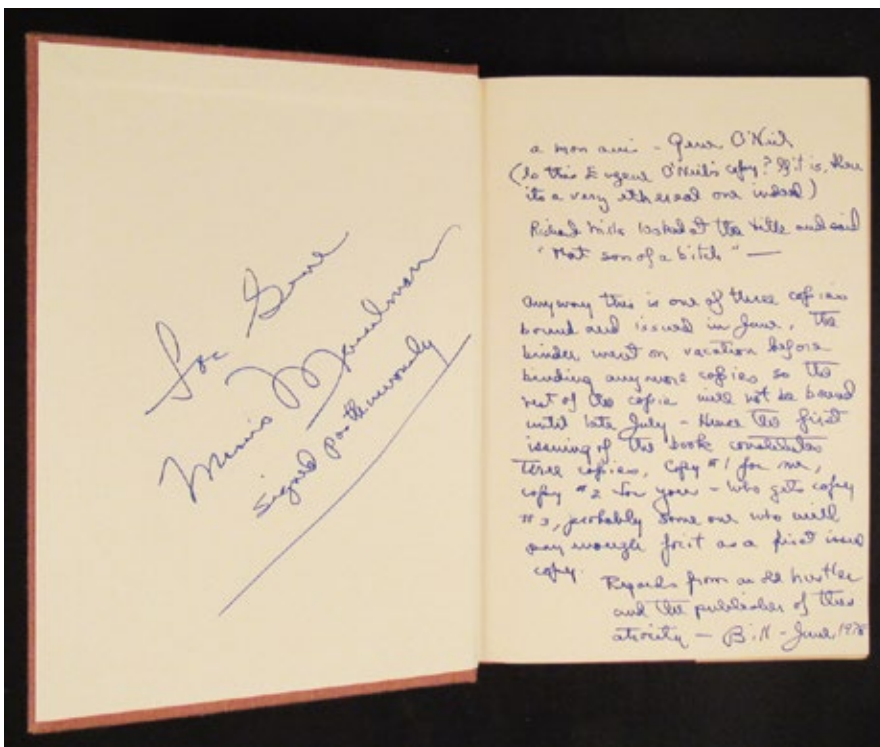 For Gene
Morris Musselman
signed posthumously
a mon ami - Gene O'Neil
(Is this Eugene O'Neil's copy? If it is, then
its a very ethereal one indeed)
Richard Mills looked at the title and said
"that son of a bitch" —
anyway this is one of three copies
bound and issued in June. The
binder went on vacation before
binding anymore copies so the
rest of the copies will not be bound
until late July - Hence the first
issuing of the book constitutes
three copies, Copy #1 for me,
copy #2 for you - who gets copy
#3, probably some one who will
a first issue
copy.
Regards from an old hustler
and the publisher of this
atrocity — B.N - June 1978